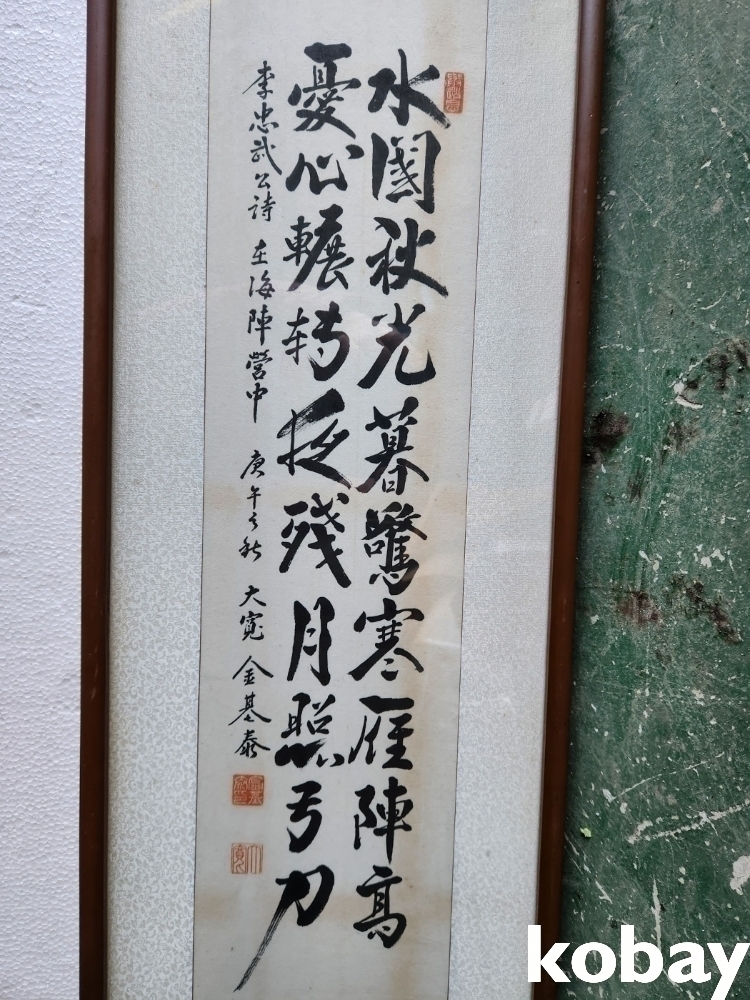 水國秋光暮驚寒雁陣高
憂心輾转夜残月照弓刀
李忠武公詩 在海陣營中 庚午之秋 大寬 金基泰
kobay